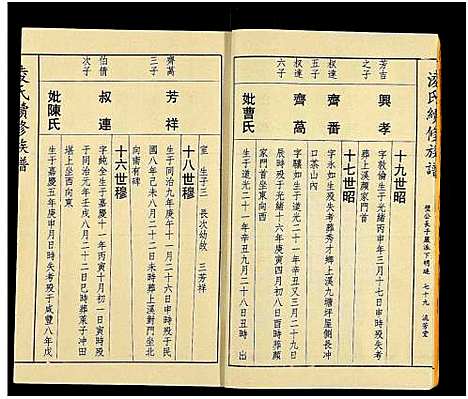 淩氏續修族譜
璧公長子嚴派下明璉 七十九 流芳堂
十九世昭
芳吉之子
興孝
字敦倫生于光緒丙申年三月十七日申時歿失考
葬上溪顏家門首
十七世昭
權達五子
齊番
字永如生歿失考葬秀才鄉上溪九塘坪屋側長冲
口茶山內
權達六子
齊萬
字囏如生于道光二十一年辛丑又三月二十九日
辰時歿于光緒十六年庚寅四月初八日酉時葬顏
家門首坐東向西
妣曹氏
生于道光二十一年辛丑九月二十八日丑時 出
室 生子三 長次幼故 三芳祥
十八世穆
齊萬三子
芳祥
生于同治九年庚午十一月二十六日申時歿于民
國八年己未八月二十二日未時葬上溪對門坐北
向南有碑
十六世穆
伯儔次子
叔連
字純全生于嘉慶十一年丙寅十月初三日寅時歿
于同治元年壬戌八月二十二日巳時葬茅子冲田
堪上坐西向東
妣陳氏
生于嘉慶五年庚申月日時失考歿于咸豐八年戊
淩氏續修族譜